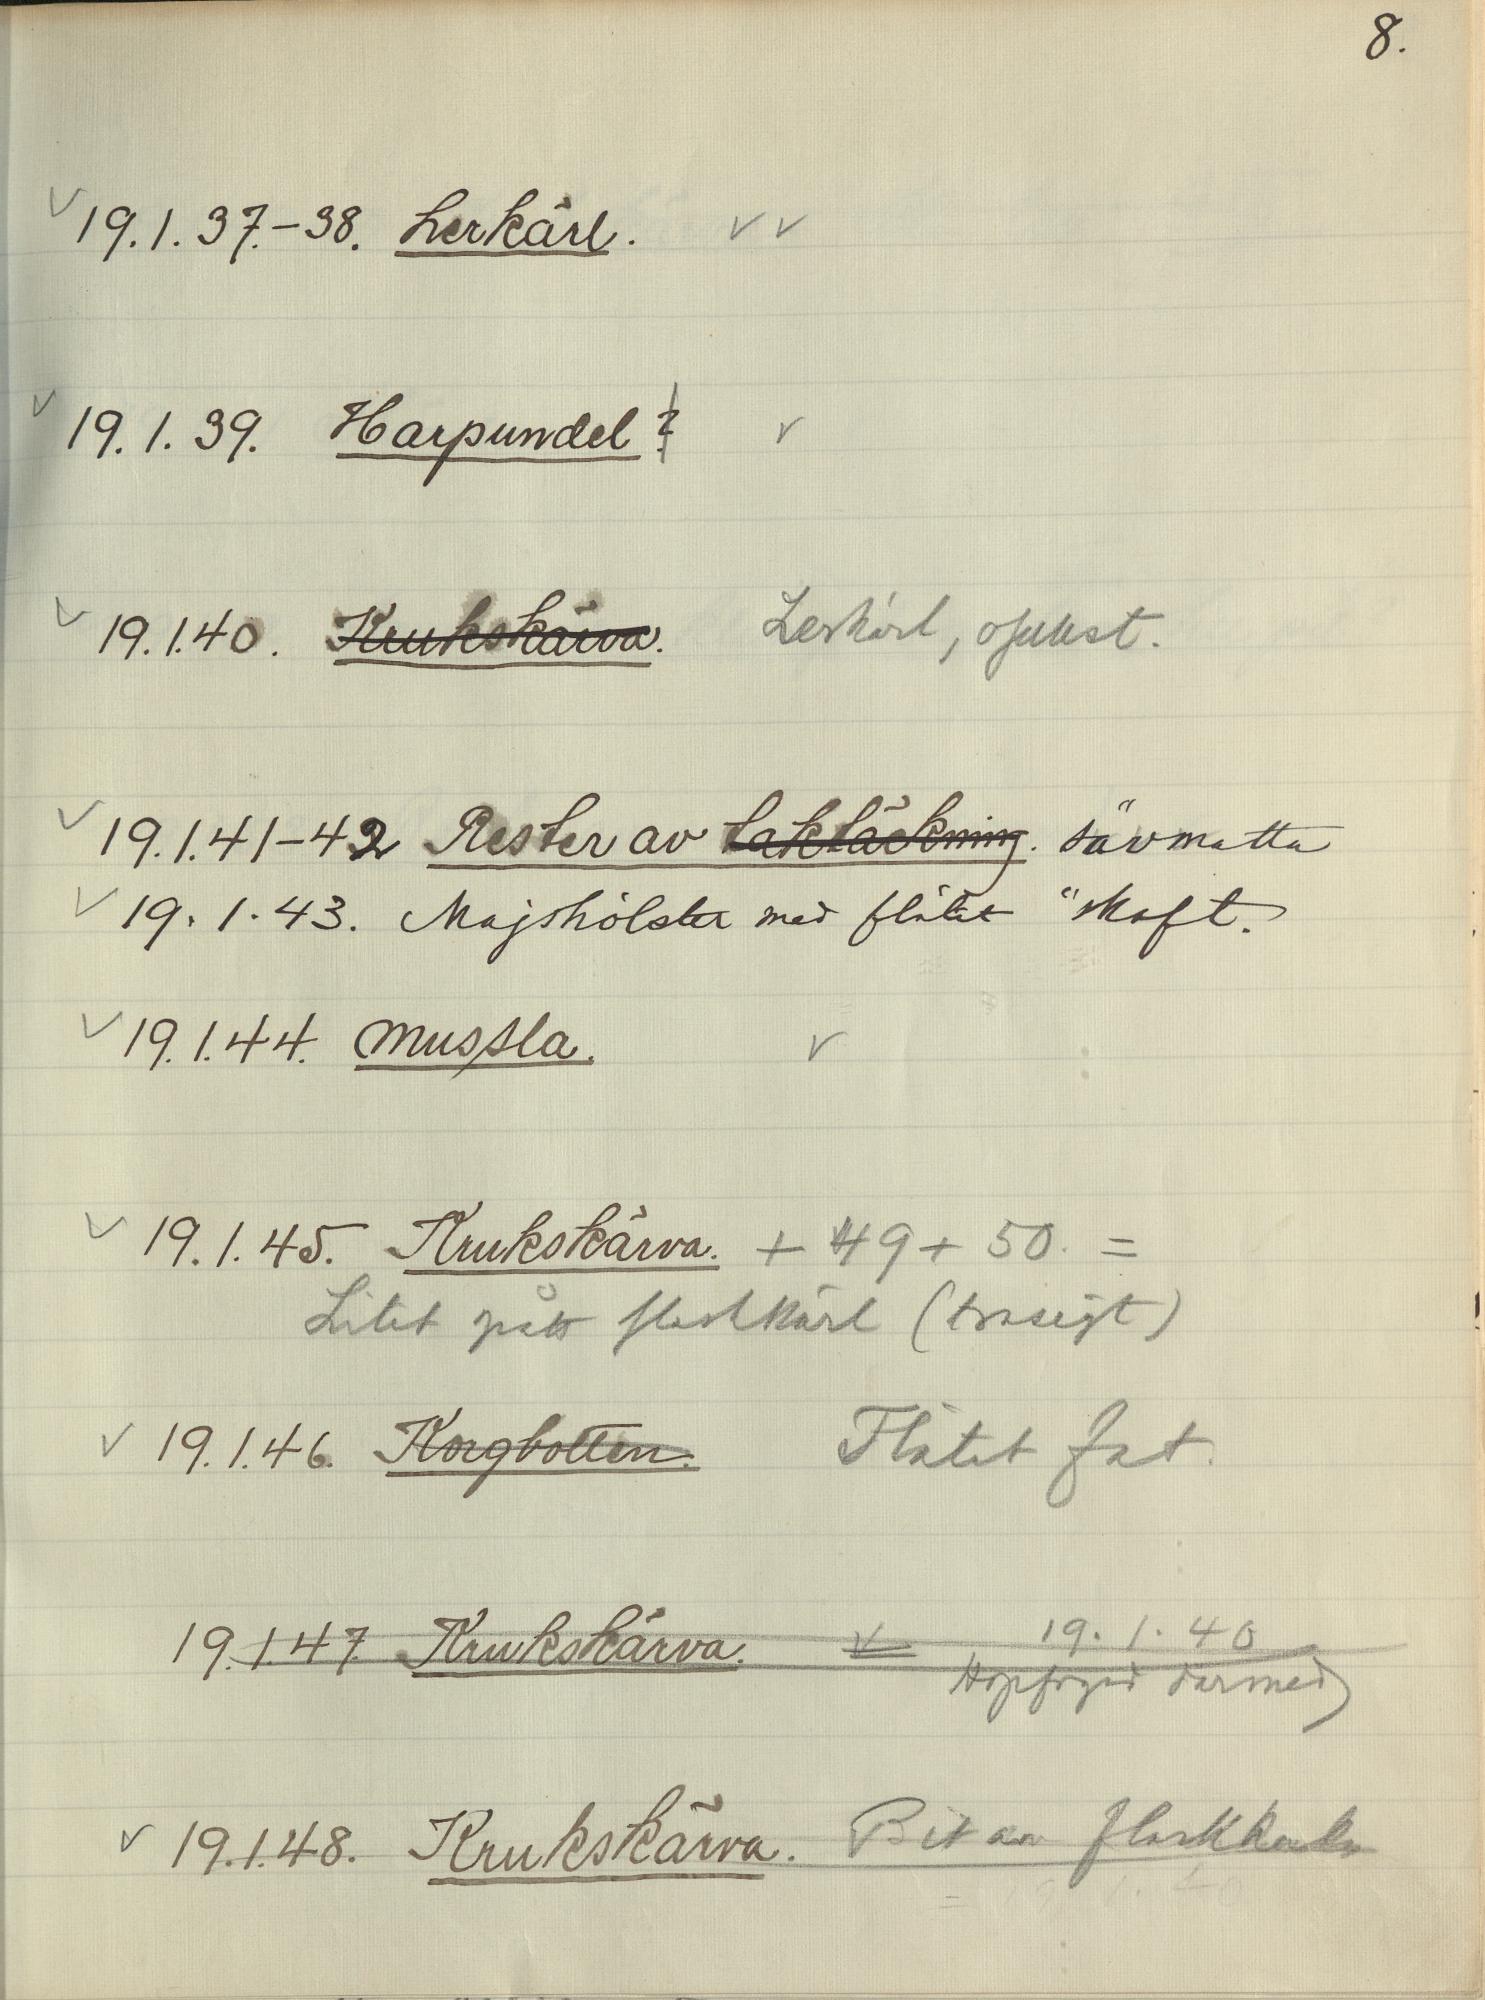 8.
19.1.37.-38. Lerkärl.
19.1.39. Harpundel?
19.1.40. Krukskärva. Lerkärl,
19.1.41-42 Rester av taktäckning. sävmatta
19.1.43. Majshölster med flätat "skaft.
19.1.44. Mussla.
19.1.45. Krukskärva. + 49 + 50. =
Litet platt flaskkärl (trasigt)
19.1.46. Korgbotten. Flätat fat.
19.1.47. Krukskärva. 19.1.40
Hopfogad därmed
19.1.48. Krukskärva. Bit av
= 19.1.40